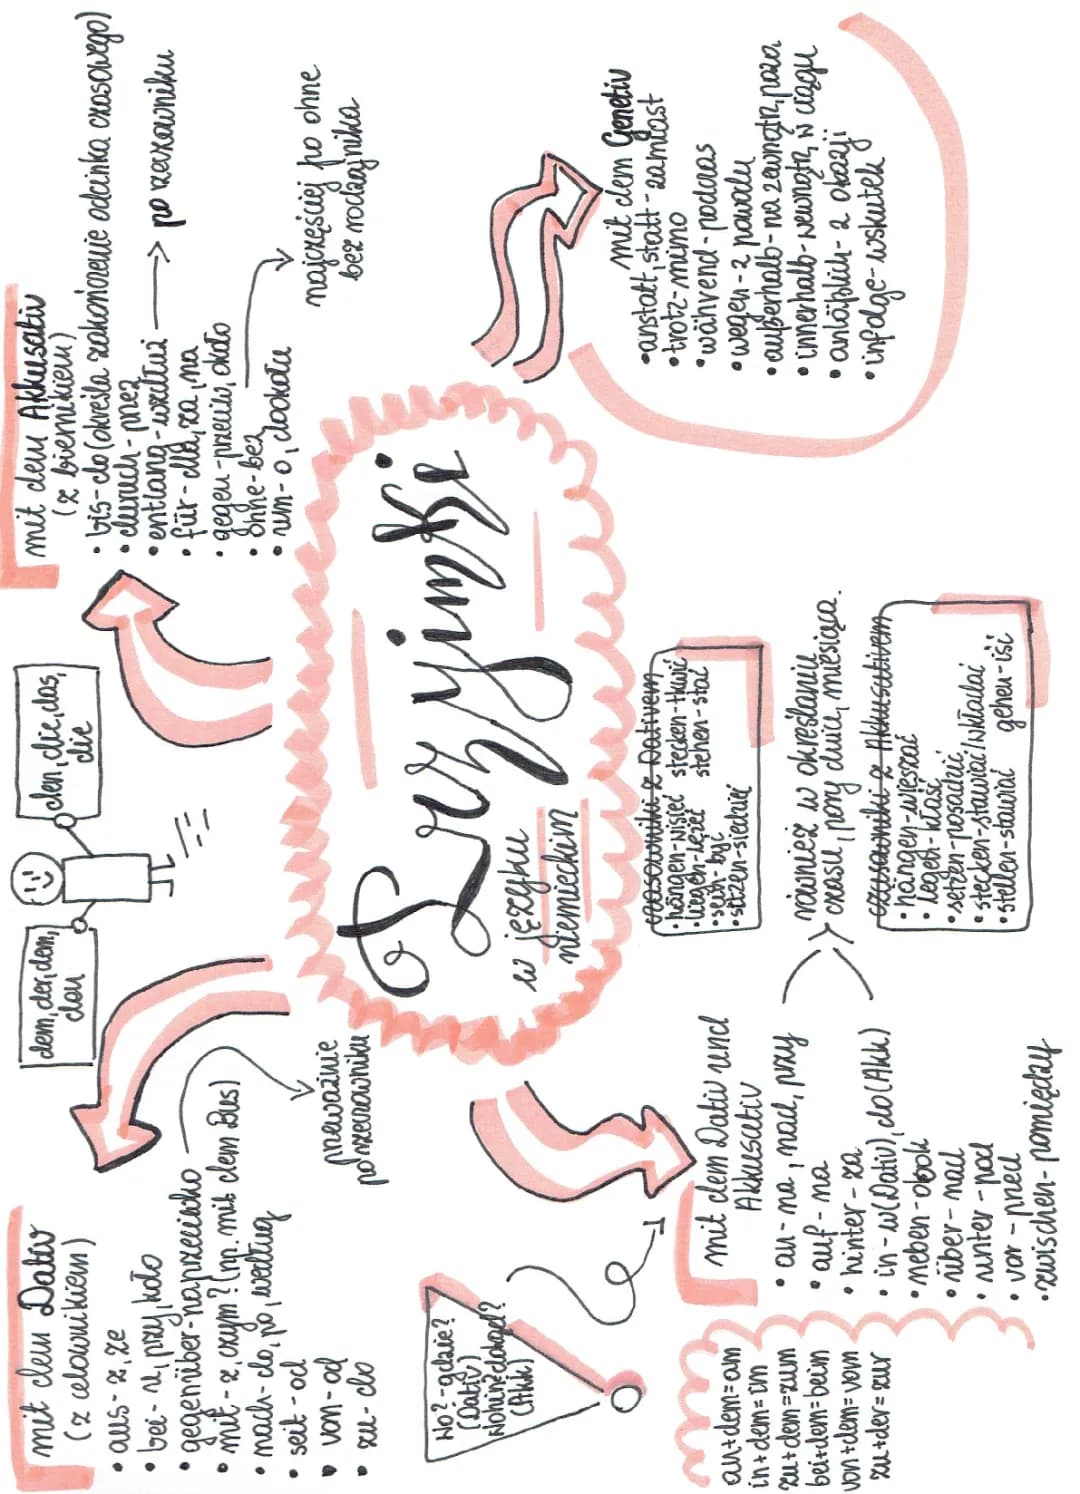 Przyimki
w języku
niemieckim
mit dem Dativ
(z celownikiem)
• aus - z, ze
• bei - u, przy, koło
• gegenüber - naprzeciwko
• mit - z czym? (np. mit dem Bus)
• nach - do, po, według
• seit - od
• von - od
• zu - do
przeważnie
po rzeczowniku
dem, der, dem,
den
den, die, das,
die
mit dem Akkusativ
(z biernikiem)
• bis - do (określa zakończenie odcinka czasowego)
• durch - przez
• entlang - wzdłuż → po rzeczowniku
• für - dla, za, na
• gegen - przeciw, około
• ohne - bez
• um - o, dookoła
najczęściej po ohne
bez rodzajnika
Wo? - gdzie?
(Dativ)
Wohin? dokąd?
(Akk)
an+dem=am
in+dem=im
zu+dem=zum
bei+dem=beim
von+dem=vom
zu+der=zur
mit dem Dativ und
Akkusativ
• an - na, nad, przy
• auf - na
• hinter - za
• in - w (Dativ), do (Akk)
• neben - obok
• über - nad
• unter - pod
• vor - przed
• zwischen - pomiędzy
również w określaniu
czasu, pory dnia, miesiąca.
czasowniki z Dativem
• hängen - wisieć stecken - tkwić
• liegen - leżeć stehen - stać
• sein - być
• sitzen - siedzieć
czasowniki z Akkusativem
• hängen - wieszać
• legen - kłaść
• setzen - posadzić
• stecken - stawiać/wkładać
• stellen - stawiać gehen - iść
mit dem Genetiv
• anstatt, statt - zamiast
• trotz - mimo
• während - podczas
• wegen - z powodu
• außerhalb - na zewnątrz, poza
• innerhalb - wewnątrz, w ciągu
• anläßlich - z okazji
• infolge - wskutek